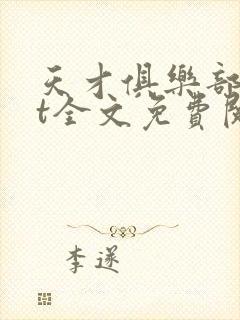 天才俱樂部
t全文免費閱
李遂